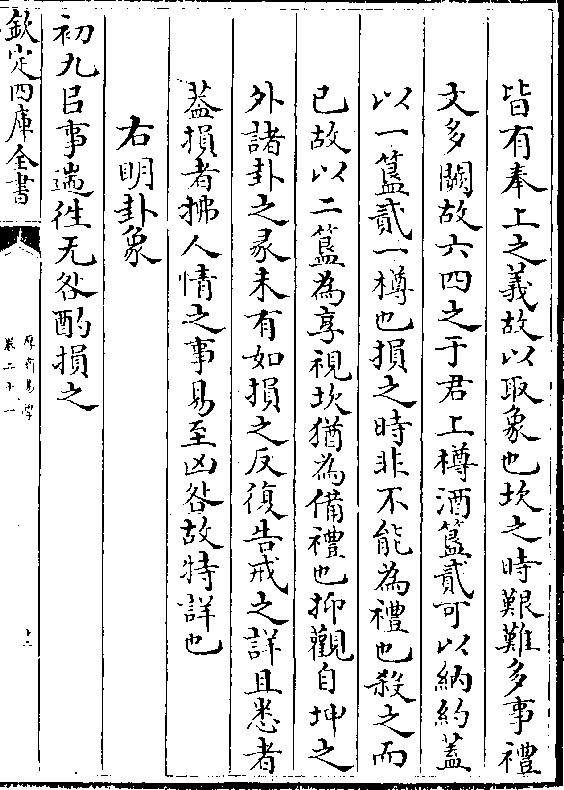 皆有奉上之義故以取象也坎之時艱難多事禮
文多闕故六四之于君上樽酒簋貳可以納約蓋
以一簋貳一樽也損之時非不能為禮也殺之而
已故以二簋為享視坎猶為備禮也抑觀自坤之
外諸卦之彖未有如損之反復告戒之詳且悉者
葢損者拂人情之事易至凶咎故特詳也
右明卦象
初九㠯事遄徃无咎酌損之
欽定四庫全書
卷二十一